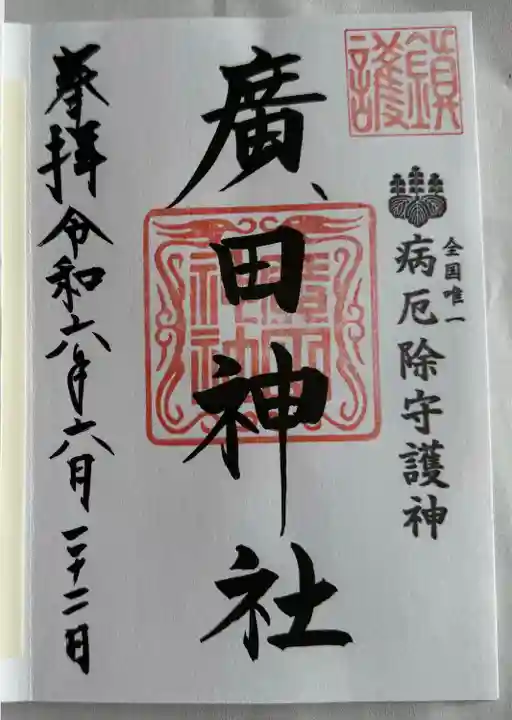 鎮護
全国唯一
病厄除守護神
廣田神社
廣田神社
奉拝令和六年六月二十二日